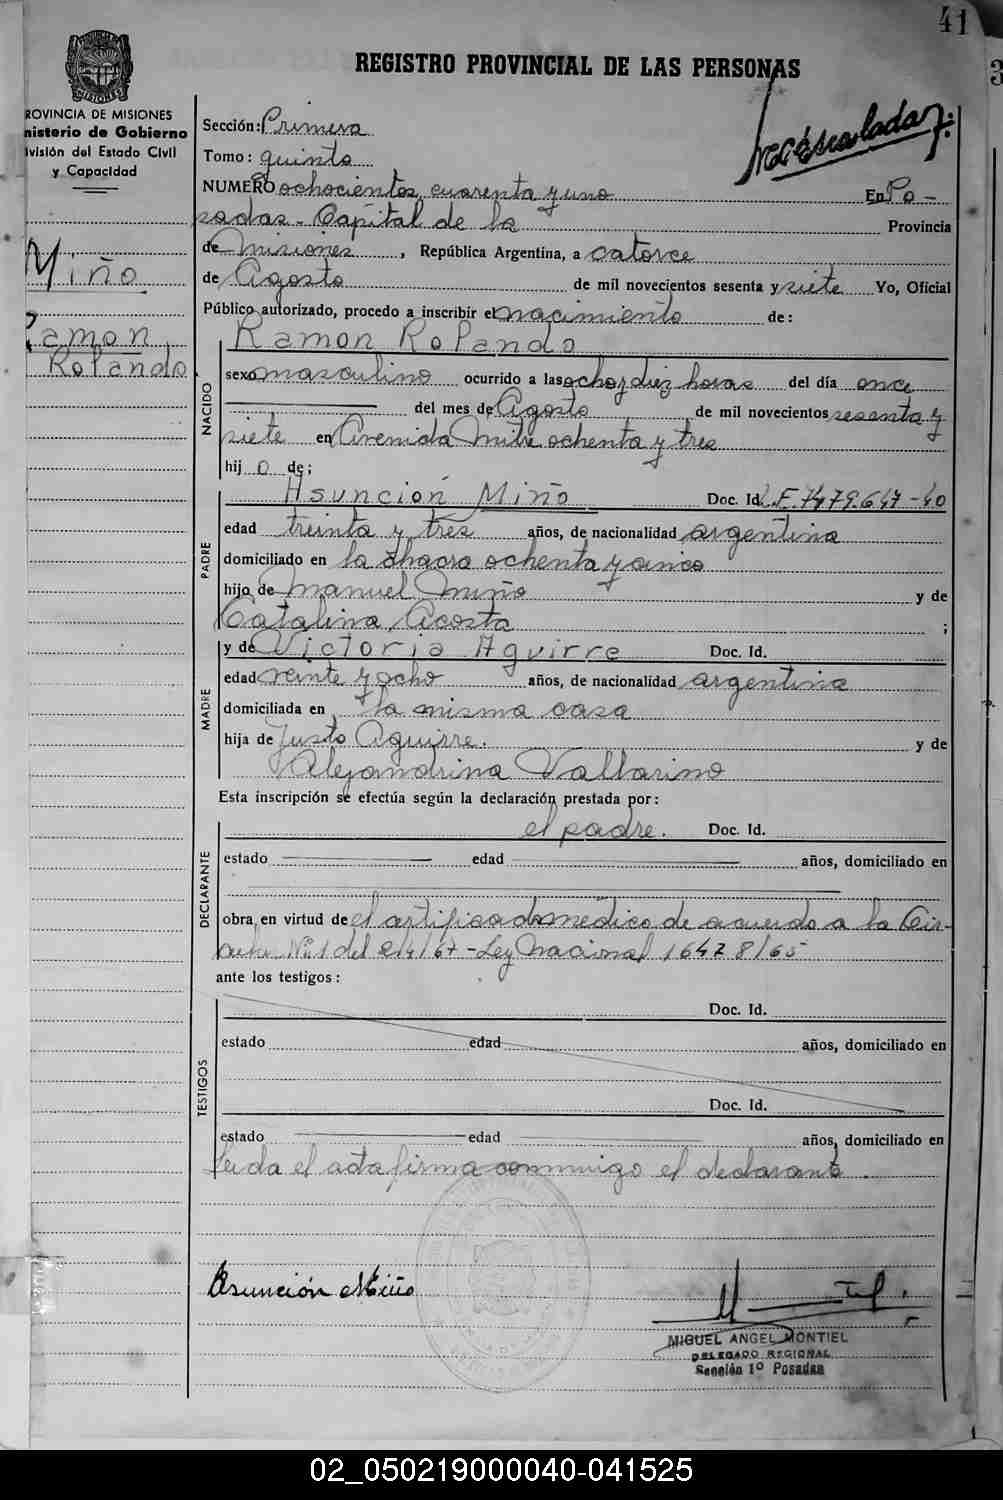 41
REGISTRO PROVINCIAL DE LAS PERSONAS
PROVINCIA DE MISIONES
ROVINCIA DE MISIONES
nisterio de Gobierno
ivisión del Estado Civil
y Capacidad
Miño
Ramon
Rolando
Sección: Primera
Tomo: quinto
NUMERO ochocientos cuarenta y uno En Po-
sadas - Capital de la Provincia
de Misiones, República Argentina, a catorce
de Agosto de mil novecientos sesenta y siete Yo, Oficial
Público autorizado, procedo a inscribir el nacimiento de:
NACIDO
Ramon Rolando
sexo masculino ocurrido a las ocho y diez horas del día once
del mes de Agosto de mil novecientos sesenta y
siete en Avenida Mitre ochenta y tres
hijo de;
PADRE
Asunción Miño Doc. Id. L.E. 7479.647-40
edad treinta y tres años, de nacionalidad argentina
domiciliado en la chacra ochenta y cinco
hijo de Manuel Miño y de
Catalina Acosta ;
MADRE
y de Victoria Aguirre Doc. Id.
edad veinte y ocho años, de nacionalidad argentina
domiciliada en la misma casa
hija de Justo Aguirre. y de
Alejandrina Vallarino
Esta inscripción se efectúa según la declaración prestada por:
DECLARANTE
el padre. Doc. Id.
estado edad años, domiciliado en
obra, en virtud de el certificado médico de acuerdo a la Cir-
cular Nº1 del 2/4/67 - Ley Nacional 16478/65
ante los testigos:
TESTIGOS
Doc. Id.
estado edad años, domiciliado en
Doc. Id.
estado edad años, domiciliado en
Leída el acta firma conmigo el declarante.
Asunción Miño
MIGUEL ANGEL MONTIEL
DELEGADO REGIONAL
Sección 1º Posadas
02_050219000040-041525